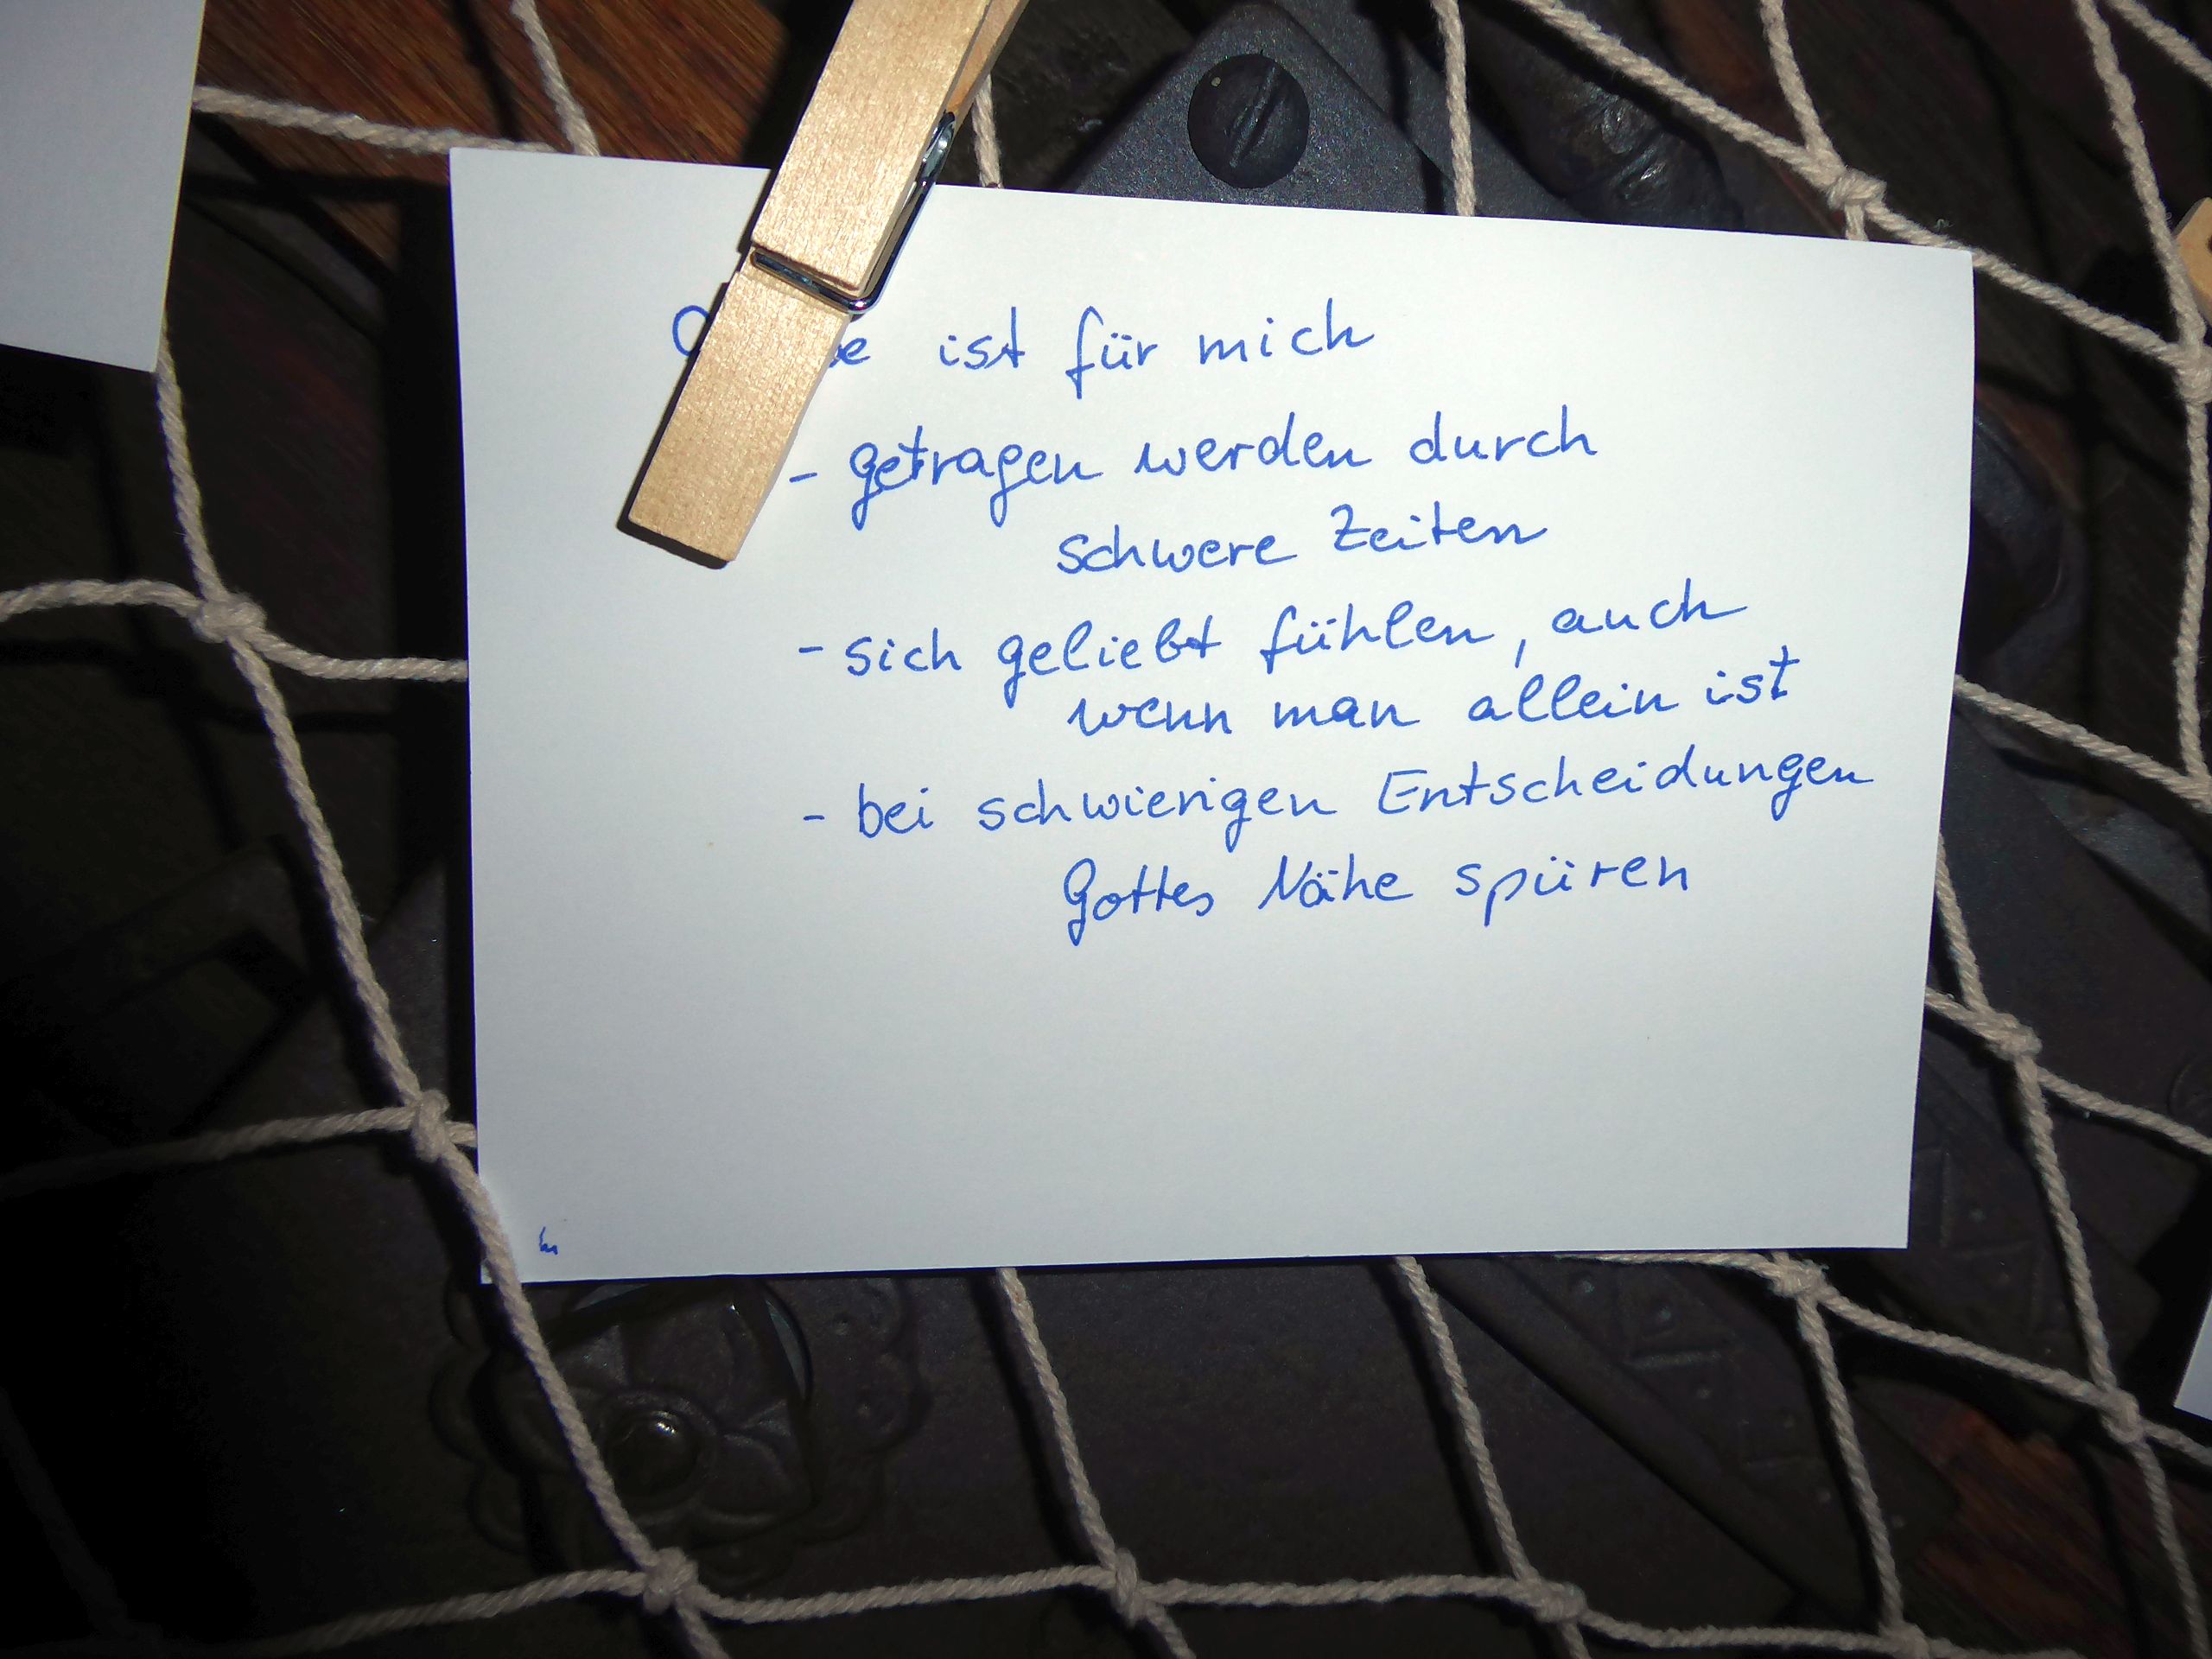 ist für mich
- getragen werden durch
schwere Zeiten
- sich geliebt fühlen, auch
wenn man allein ist
- bei schwierigen Entscheidungen
Gottes Nähe spüren